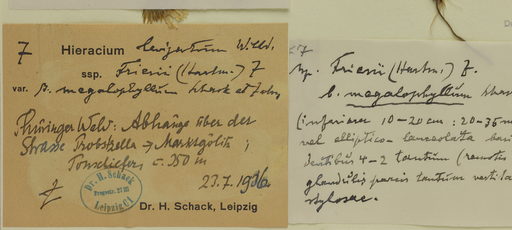 7 Hieracium laevigatum Willd.
ssp. Friesii (Hartm.) Z
var. b. megalophyllum Schack et Zahn
Thüringer Wald: Abhänge über der
Strasse Probstzella → Marktgölitz;
Tonschiefer, c. 350 m
23.7.1936.
Dr. H. Schack
Leipzig O1
Dr. H. Schack, Leipzig
7
ssp. Friesii (Hartm.) Z.
b. megalophyllum Schack
(inferiora 10-20 cm : 20-36 m
val elliptico-lanceolata basi
dentibus 4-2 tantum (remotis
glandulis paucis tantum
stylosae.